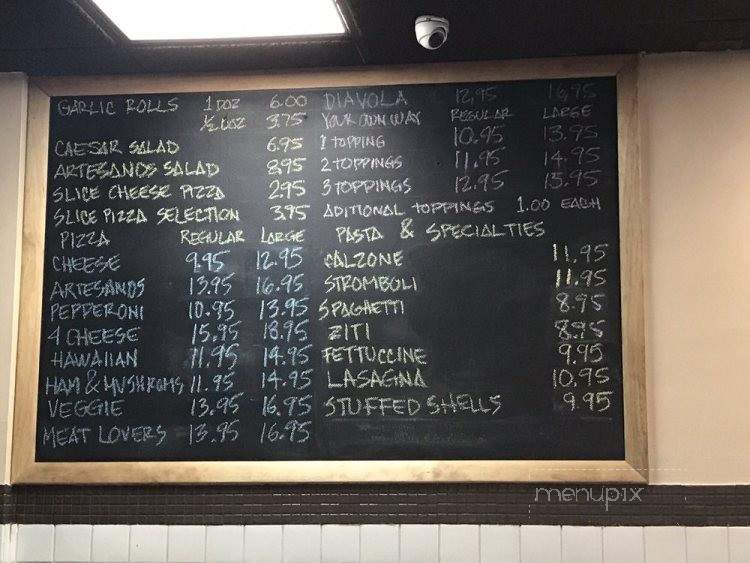 GARLIC ROLLS 1 DOZ 6.00
½ DOZ 3.75
CAESAR SALAD 6.95
ARTESANOS SALAD 8.95
SLICE CHEESE PIZZA 2.95
SLICE PIZZA SELECTION 3.75
PIZZA REGULAR LARGE
CHEESE 9.95 12.95
ARTESANOS 13.95 16.95
PEPPERONI 10.95 13.95
4 CHEESE 15.95 18.95
HAWAIIAN 11.95 14.95
HAM & MUSHROOMS 11.95 14.95
VEGGIE 13.95 16.95
MEAT LOVERS 13.95 16.95
DIAVOLA 12.95 16.95
YOUR OWN WAY REGULAR LARGE
1 TOPPING 10.95 13.95
2 TOPPINGS 11.95 14.95
3 TOPPINGS 12.95 15.95
ADITIONAL TOPPINGS 1.00 EACH
PASTA & SPECIALTIES
CALZONE 11.95
STROMBOLI 11.95
SPAGHETTI 8.95
ZITI 8.95
FETTUCCINE 9.95
LASAGNA 10.95
STUFFED SHELLS 9.95
menupix